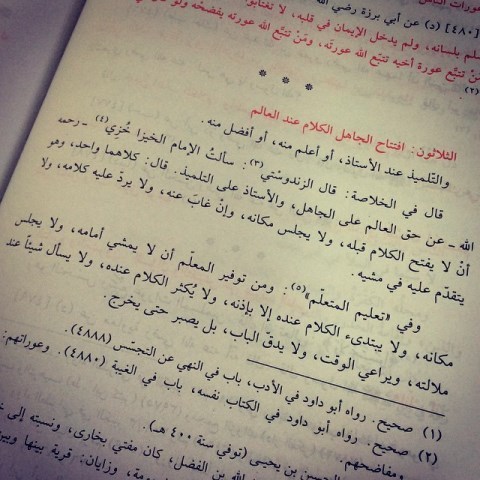 [٤٨٠] (د) عن أبي برزة رضي الله
بلسانه، ولم يدخل الإيمان في قلبه، لا تغتابوا
مَنْ تتبَّع عورة أخيه تتبَّع الله عورته، ومَنْ تتبَّع الله عورته يفضحُه ولو
(٢).
* * *
الثلاثون: افتتاح الجاهل الكلام عند العالم
والتّلميذ عند الأستاذ، أو أعلم منه، أو أفضل منه.
قال في الخلاصة: قال الزندوستي(٣): سألتُ الإمام الخيزاخُزِي(٤) ـ رحمه
الله ـ عن حق العالم على الجاهل، والأستاذ على التلميذ. قال: كلاهما واحد، وهو
أنْ لا يفتتح الكلام قبله، ولا يجلس مكانه، وإنْ غابَ عنه، ولا يردّ عليه كلامه، ولا
يتقدّم عليه في مشيه.
وفي «تعليم المتعلّم»(٥): ومن توقير المعلّم أن لا يمشي أمامه، ولا يجلس
مكانه، ولا يبتدىء الكلام عنده إلا بإذنه، ولا يُكثر الكلام عنده، ولا يسأل شيئاً عند
ملالته، ويراعي الوقت، ولا يدقّ الباب، بل يصبر حتى يخرج.
(١) صحيح. رواه أبو داود في الأدب، باب في النهي عن التجسّس (٤٨٨٨).
(٢) صحيح. رواه أبو داود في الكتاب نفسه، باب في الغيبة (٤٨٨٠). وعوراتهم:
ومفاضحهم.
بن يحيى (توفي سنة ٤٠٠ هـ).
الله بن الفضل، كان مفتي بخارى، ونسبته إلى
وزايان: قرية بينها وبين